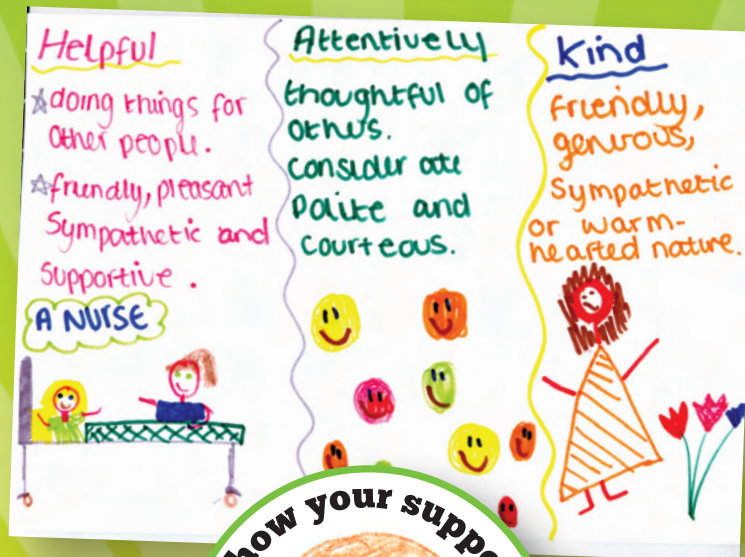 Helpful
☆doing things for
Other people.
☆friendly, pleasant
Sympathetic and
Supportive.
A NUrSE
Attentively
thoughtful of
others.
Consider ate
Polite and
Courteous.
Kind
friendly,
generous,
Sympathetic
or warm-
hearted nature.
how your suppo